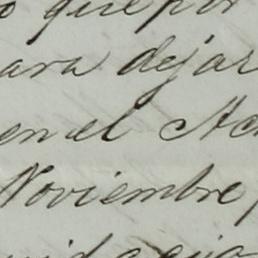 o que por
ara dejar
en el Ac
Noviembre,